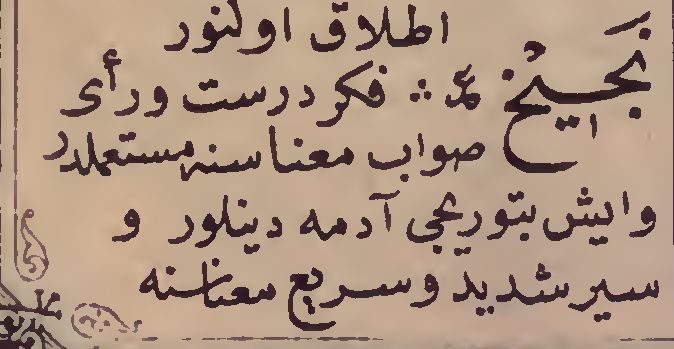 اطلاق اولنور
نَجيحٌ ع ∴ فكر درست ورأى
صواب معناسنه مستعملدر
وايش بتوريجى آدمه دينلور و
سير شديد وسريع معناسنه